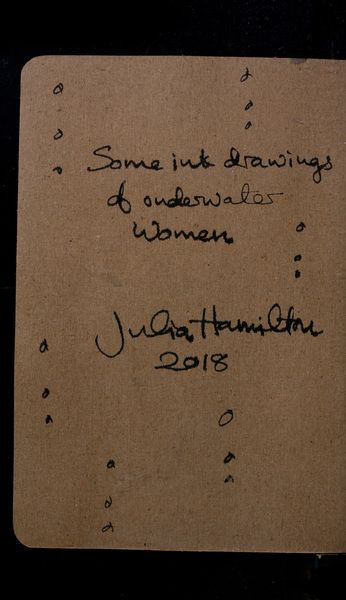 Some ink drawings
of underwater
Women
Julia Hamilton
2018